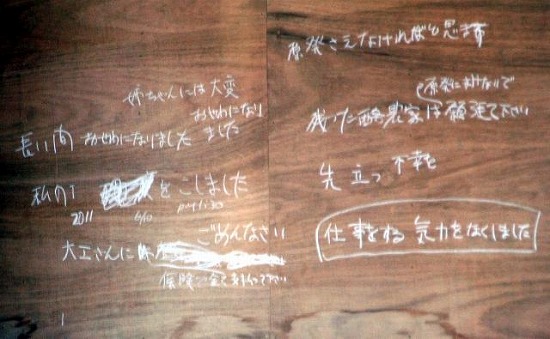 原発さえなければと思ます
原発に負けないで
残った酪農家は 願張て下さい
先立つ 不幸を
仕事をする 気力をなくしました
姉ちゃんには 大変
おせわになり
ました
長い間 おせわになりました
私の
をこしました
2011 6/10 pm 1:30
ごめんなさい
大工さんに
保険で全て支払って下さい